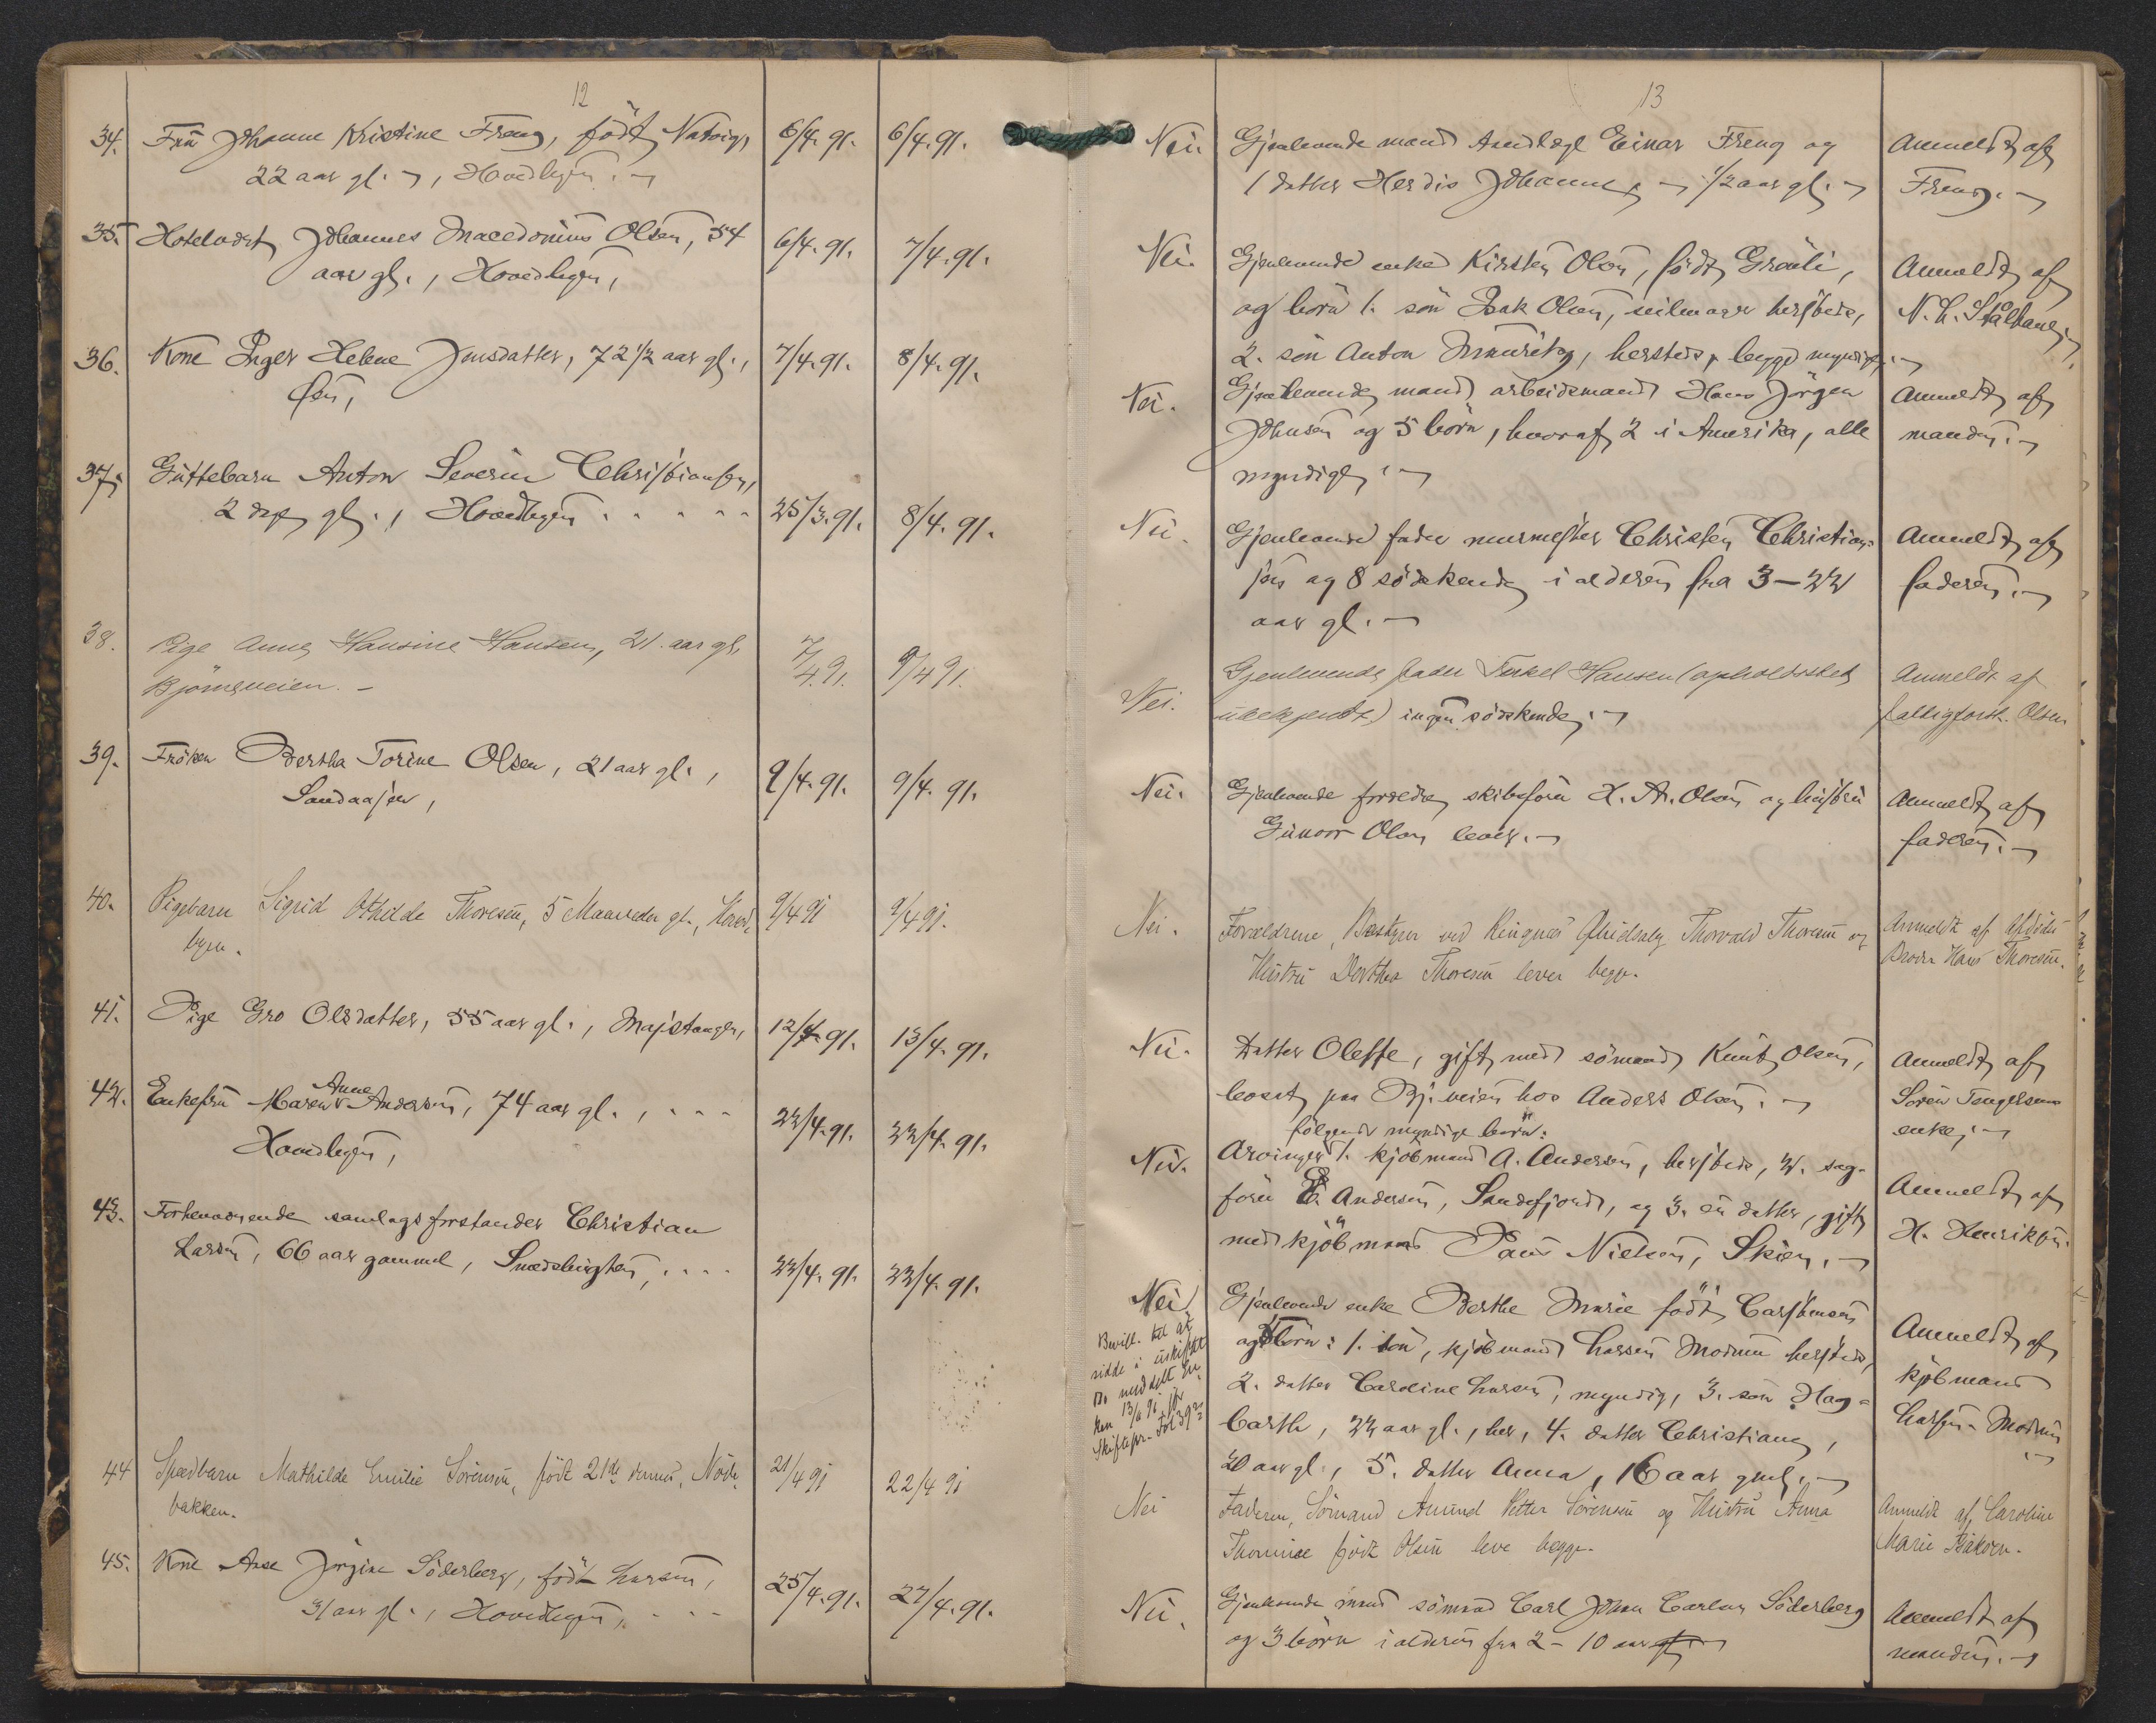 12
34. Frü Johanne Kristine Freng, född Natvig,
22 aar gl. , Hovedbyen. 6/4.91. 6/4.91.
35. Hotelvært Johannes Macedonius Olsen, 54 6/4.91. 7/4.91.
aar gl., Hovedbyen,
36. Kone Inger Helene Jensdatter, 72 1/2 aar gl., 7/4.91. 8/4.91.
Øen,
37. Guttebarn Anton Severin Christiansen,
2 dage gl., Hovedbyen . . . . . 25/3.91. 8/4.91.
38. Pige Anne Hansine Hansen, 21 aar gl. 7/4.91. 9/4 91.
Bjørneveien. –
39. Frøken Bertha Torine Olsen, 21 aar gl., 9/4.91. 9/4.91.
Sandaasen,
40. Pigebarn Sigrid Othilde Thoresen, 5 Maaneder gl., Hoved- 9/4 91 9/4 91.
byen.
41. Pige Gro Olsdatter, 55 aar gl., Majstangen, 12/4.91. 13/4.91.
Anne
42. Enkefrü Maren Andersen, 74 aar gl., . . . 22/4.91. 22/4.91.
Hovedbyen,
43. Forhenværende samlagsforstander Christian
Larsen, 66 aar gammel, Smedsbugten, . . . . 22/4.91. 22/4.91.
44 Spædbarn Mathilde Emilie Sørensen, født 21de dennes, Nøde- 21/4 91 22/4 91
bakken.
45. Kone Anse Jørgine Söderberg, född Larsen, 25/4.91. 27/4.91.
31 aar gl., Hovedbyen, . . .
13
Nei. Gjenlevende mand Amtdlægl Einar Freng og Anmeldt af
1 datter Herdis Johanne, 1/2 aar gl. Freng.
Nei. Gjenlevende enke Kirsten Olsen, född Grøuli, Anmeldt af
og børn 1. søn Isak Olsen, seilmager hersteds, N. L. Stålhane
2. søn Anton Mauritz, hersteds, begge myndige.
Nei. Gjenlevende mand arbeidsmand Hans Jörgen Anmeldt af
Johnsen og 5 børn, hvoraf 2 i Amerika, alle manden.
myndige.
Nei. Gjenlevende fader murmester Christen Christian- Anmeldt af
sen og 8 södskende i alderen fra 3–22 faderen.
aar gl.
Gjenlevende fader Terkel Hansen (opholdssted Anmeldt af
Nei. ubekjendt) ingen södskende. fattigforst. Olsen
Nei. Gjenlevende forældre, skibsförer H. A. Olsen og hustru Anmeldt af
Gunvor Olsen lever. faderen.
Nei. Forældrene, Bestyrer ved Ringnes Ølindsalg Thorvald Thoresen og Anmeldt af Afdødes
Hustru Dorthea Thoresen lever begge. Broder Hans Thoresen.
Nei. Datter Oleffe, gift med sömand Knut Olsen, Anmeldt af
bosat paa Bj.veien hos Anders Olsen. Sören Tengersens
enke,
følgende myndige børn:
Nei. Arvinger 1. kjöbmand A. Andersen, hersteds, 2. sag- Anmeldt af
förer E. Andersen, Sandefjord, og 3. en datter, gift H. Henriksen.
med kjöbmand Paul Nielsen, Skien.
Nei. Gjenlevende enke Berthe Marie född Carstensen Anmeldt af
og 5 børn: 1. søn, kjöbmand Larsen Morum hersteds, kjöbmand
2. datter Caroline Larsen, myndig, 3. søn Hag- Larsen-Morum
barth, 22 aar gl., her, 4. datter Christiane,
20 aar gl., 5. datter Anna, 16 aar gml.
Bevill. til at
sidde i uskiftet
Bo meddelt En-
ken 13/6 91, jfr
Skiftepr. Fol 39
Nei Faderen, Sömand Amund Petter Sørensen og Hustru Anna Anmeldt af Caroline
Thomine född Olsen leve begge. Marie
Nei. Gjenlevende mand sömand Carl Johan Carlsen Söderberg Anmeldt af
og 3 børn i alderen fra 2–10 aar gl. manden.